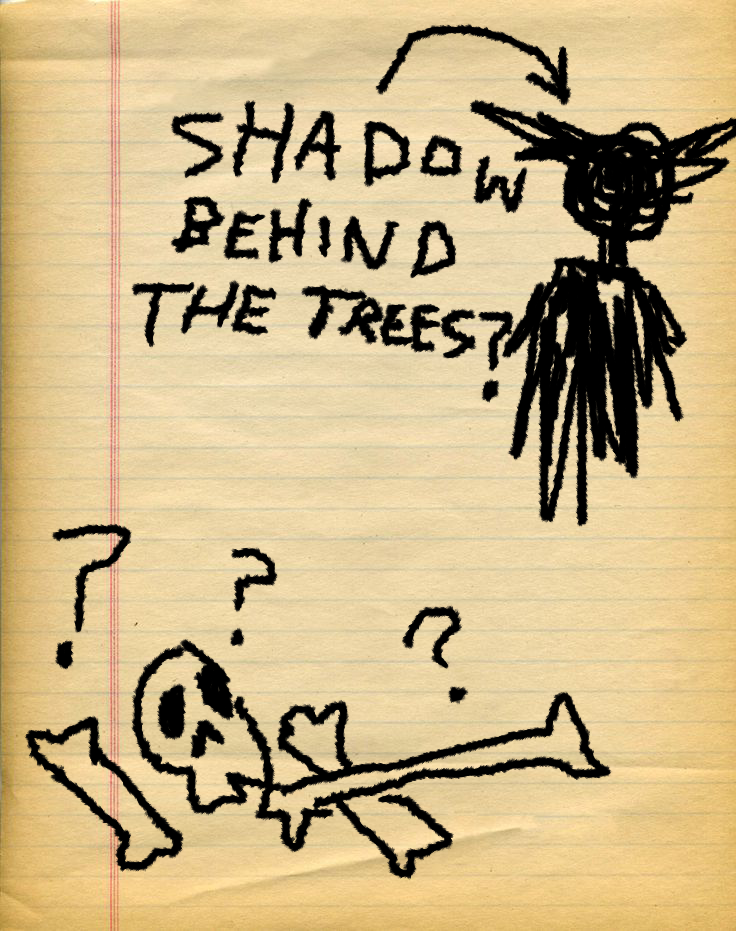 SHADOW
BEHIND
THE TREES?
?
?
?